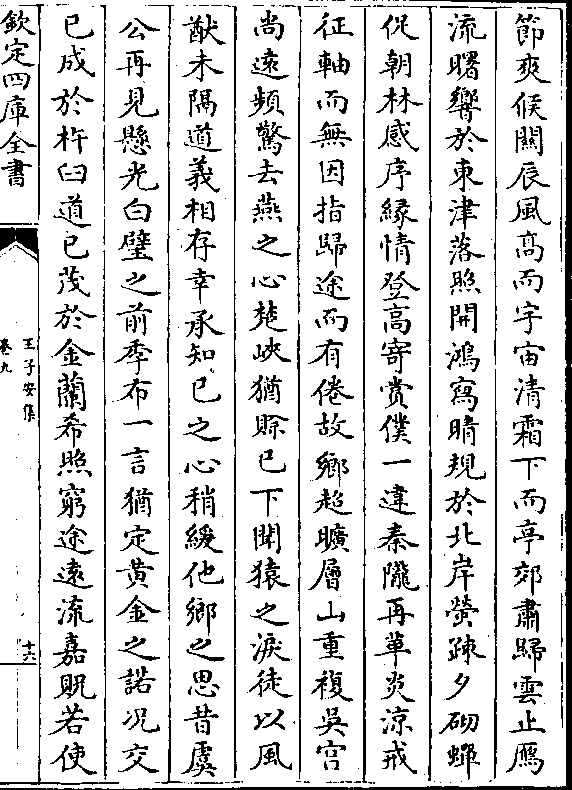 節爽候闗辰風髙而宇宙清霜下而亭郊肅歸雲止鴈
流曙響於東津落照開鴻寫晴規於北岸螢疎夕砌蟬
促朝林感序緣情登高寄賞僕一違秦隴再革炎涼戒
征軸而無因指歸途而有倦故鄉超曠層山重複吳宫
尚遠頻驚去燕之心楚峽猶賒已下聞猿之淚徒以風
猷未隔道義相存幸承知已之心稍緩他鄉之思昔虞
公再見懸光白璧之前季布一言猶定黄金之諾况交
已成於杵臼道已茂於金蘭希照窮途逺流嘉貺若使
欽定四庫全書
王子安集
卷九
十六